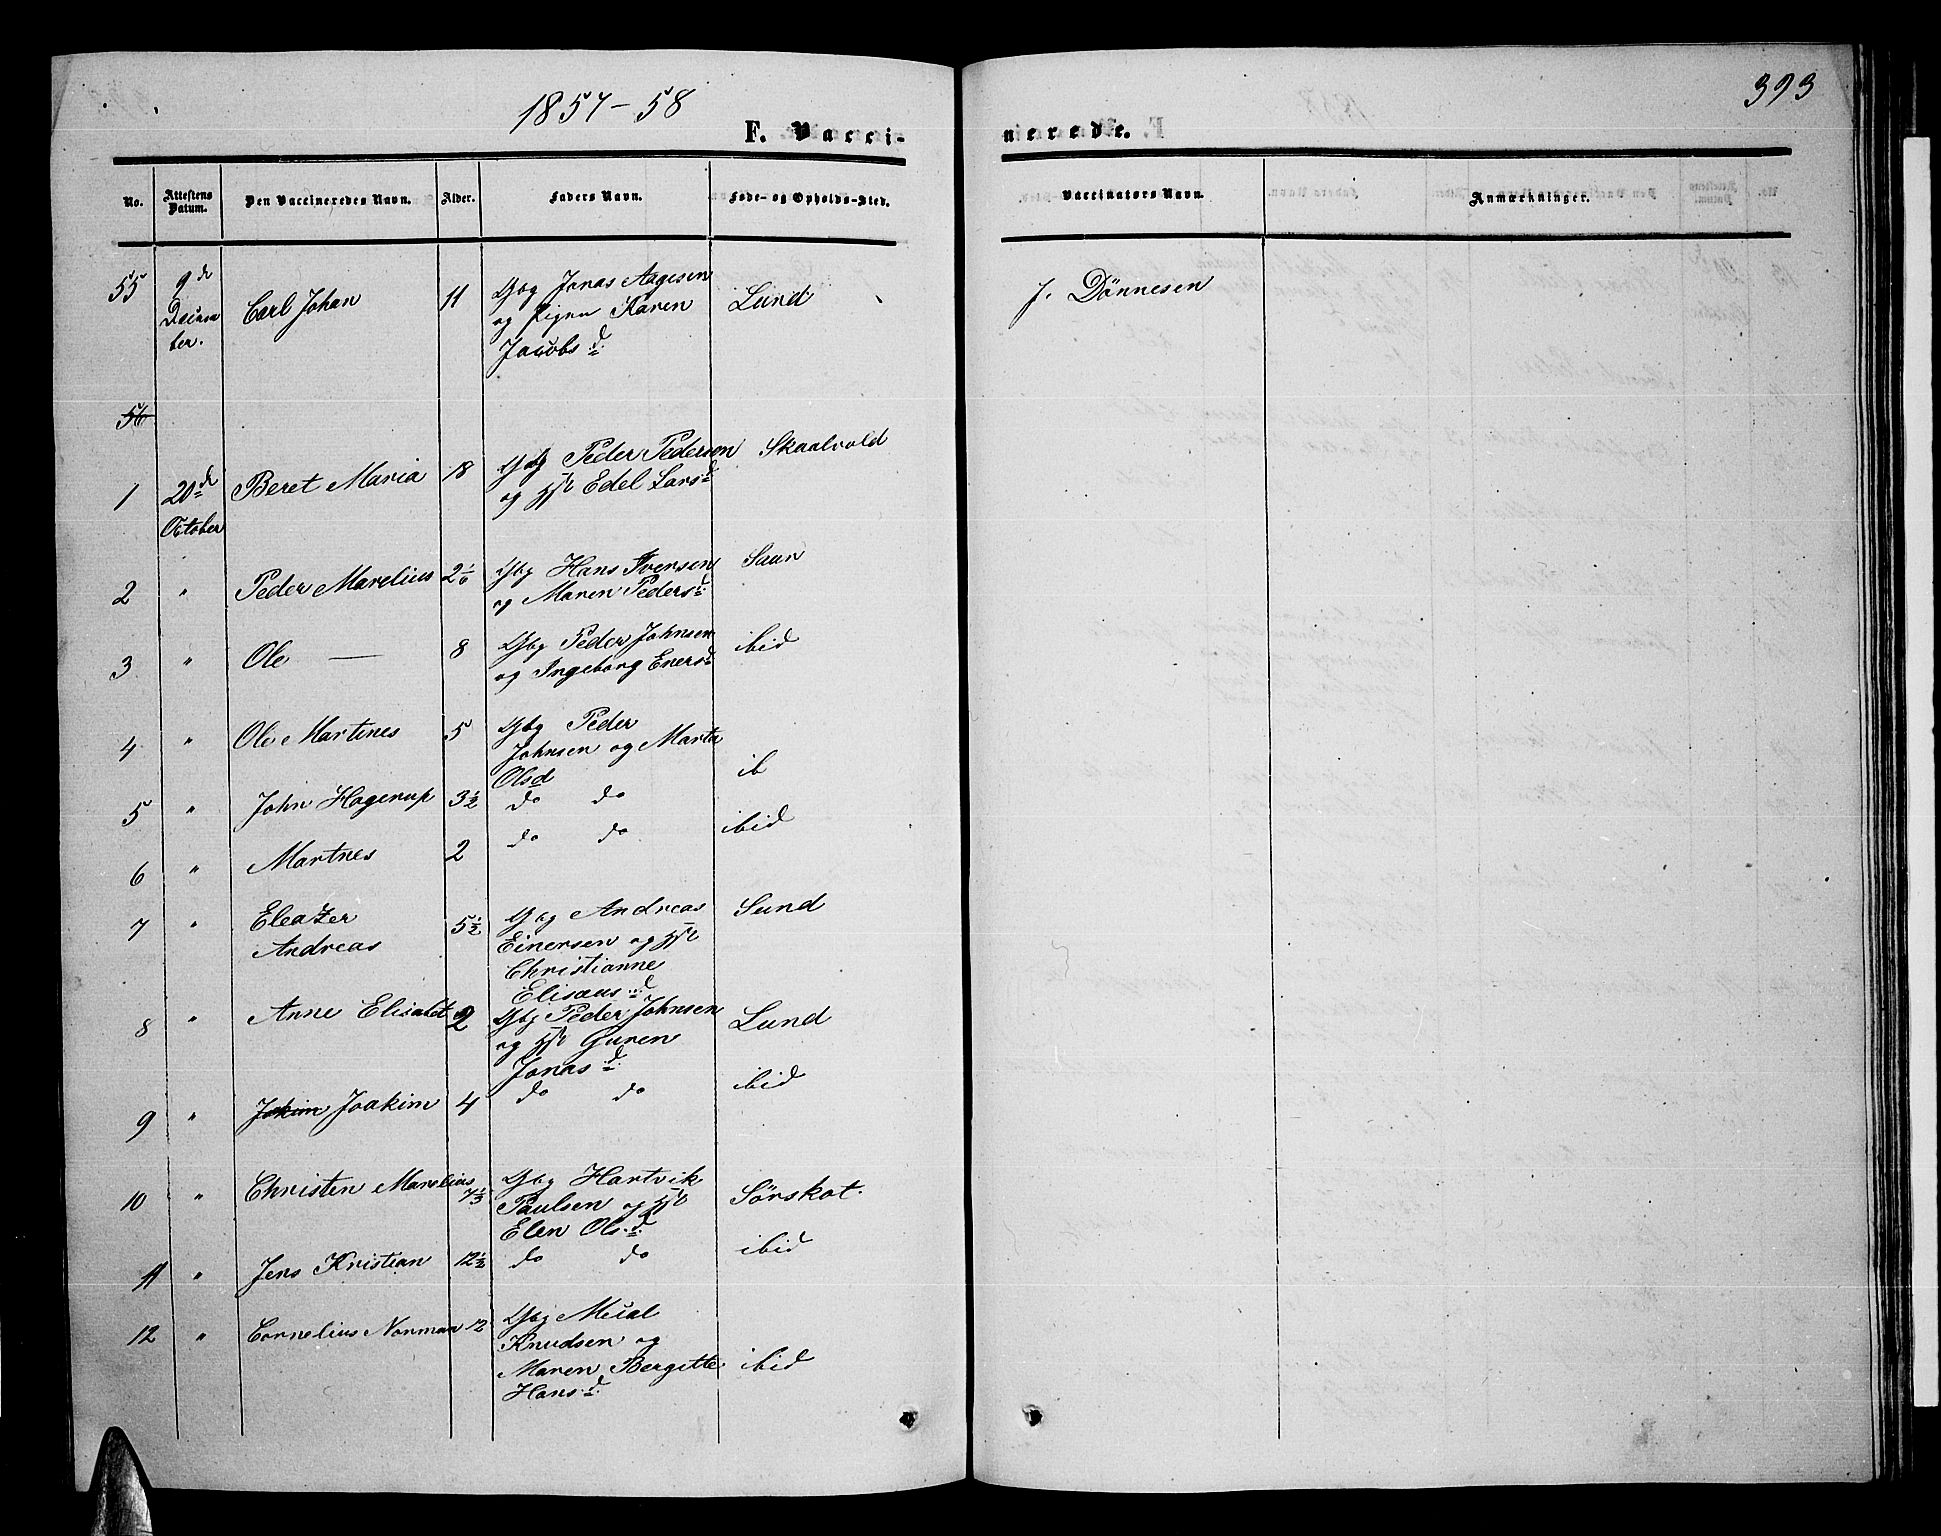 1857-58
393
F. Vacci-
nerede.
No.
Attestens Datum.
Den Vaccineredes Navn.
Alder.
Faders Navn.
Føde- og Opholds-Sted.
Vaccinators Navn.
Anmærkninger.
55 9de December. Carl Johan 11 Gbg Jonas Aagesen
og Karen
Jacobsd.
Lund
J. Dönnesen
56
1 20de October Beret Maria 18 Gbg Peder Pedersen
og Edel Larsd
Skaalvold
2 " Peder Marelius 2 Gbg Hans Iversen
og Maren Pedersd.
Saur
3 " Ole — 8 Gbg Peder Johnsen
og Ingeborg Enersd
ibid
4 " Ole Martines 5 Gbg Peder
Johnsen og Marta
Olsd
ib
5 " John Hagerup 3½ do do
ibid
6 " Martnes 2 do do
7 " Eleazer
Andreas
5½ Gbg Andreas
Einersen og
Christianne
Elisæusd.
Sund
8 " Anne Elisabet 2 Gbg Peder Johnsen
og Guren
Jonasd.
Lund
9 " Jokim Joakim 4 do do ibid
10 " Christen Marelius 7⅓ Gbg Hartvik
Paulsen og
Elen Olsd.
Sörskot.
11 " Jens Kristian 12½ do do ibid
12 " Cornelius Norman 12 Gbg Mical
Knudsen og
Maren Bergitte
Hansd.
ibid